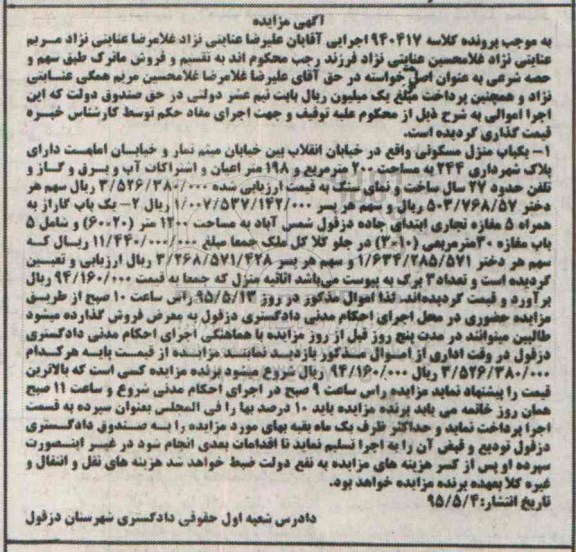 آگهی مزایده
به موجب پرونده کلاسه ۹۴۰۴۱۷ اجرایی آقایان علیرضا عنایتی نژاد غلامرضا عنایتی نژاد مریم
عنایتی نژاد غلامحسین عنایتی نژاد فرزند رجب محکوم اند به تقسیم و فروش ماترک طبق سهم و
حصه شرعی به عنوان اصل خواسته در حق آقای علیرضا غلامرضا غلامحسین مریم همگی عنایتی
نژاد و همچنین پرداخت مبلغ یک میلیون ریال بابت نیم عشر دولتی در حق صندوق دولت که این
اجرا اموالی به شرح ذیل از محکوم علیه توقیف و جهت اجرای مفاد حکم توسط کارشناس خبره
قیمت گذاری گردیده است.
۱- یکباب منزل مسکونی واقع در خیابان انقلاب بین خیابان میثم تمار و خیابان امامت دارای
پلاک شهرداری ۲۴۴ به مساحت ۲۰۰ مترمربع و ۱۹۸ متر اعیان و اشتراکات آب و برق و گاز و
تلفن حدود ۲۷ سال ساخت و نمای سنگ به قیمت ارزیابی شده ۳/۵۲۶/۳۸۰/۰۰۰ ریال سهم هر
دختر ۵۰۳/۷۶۸/۵۷ ریال و سهم هر پسر ۱/۰۰۷/۵۳۷/۱۴۲/۰۰۰ ریال ۲- یک باب گاراژ به
همراه ۵ مغازه تجاری ابتدای جاده دزفول شمس آباد به مساحت ۱۲۰۰ متر (۲۰×۶۰) و شامل ۵
باب مغازه ۳۰مترمربعی (۱۰×۳) در جلو کلا کل ملک جمعا مبلغ ۱۱/۴۴۰/۰۰۰/۰۰۰ ریال که
سهم هر دختر ۱/۶۳۴/۲۸۵/۵۷۱ و سهم هر پسر ۳/۲۶۸/۵۷۱/۴۲۸ ریال ارزیابی و تعیین
گردیده است و تعداد۳ برگ به پیوست می‌باشد اثاثیه منزل که جمعا به قیمت ۹۴/۱۶۰/۰۰۰ ریال
برآورد و قیمت گردیده‌اند. لذا اموال مذکور در روز ۹۵/۵/۱۳ راس ساعت ۱۰ صبح از طریق
مزایده حضوری در محل اجرای احکام مدنی دادگستری دزفول به معرض فروش گذارده میشود
طالبین میتوانند در مدت پنج روز قبل از روز مزایده با هماهنگی اجرای احکام مدنی دادگستری
دزفول در وقت اداری از اموال مذکور بازدید نمایند مزایده از قیمت پایه هرکدام
۳/۵۲۶/۳۸۰/۰۰۰ ریال ۹۴/۱۶۰/۰۰۰ ریال شروع میشود برنده مزایده کسی است که بالاترین
قیمت را پیشنهاد نماید مزایده راس ساعت ۹ صبح در اجرای احکام مدنی شروع و ساعت ۱۱ صبح
همان روز خاتمه می یابد برنده مزایده باید ۱۰ درصد بها را فی المجلس بعنوان سپرده به قسمت
اجرا پرداخت نماید و حداکثر ظرف یک ماه بقیه بهای مورد مزایده را به صندوق دادگستری
دزفول تودیع و قبض آن را به اجرا تسلیم نماید تا اقدامات بعدی انجام شود در غیر اینصورت
سپرده او پس از کسر هزینه های مزایده به نفع دولت ضبط خواهد شد هزینه های نقل و انتقال و
غیره کلا بعهده برنده مزایده خواهد بود.
تاریخ انتشار: ۹۵/۵/۴
دادرس شعبه اول حقوقی دادگستری شهرستان دزفول